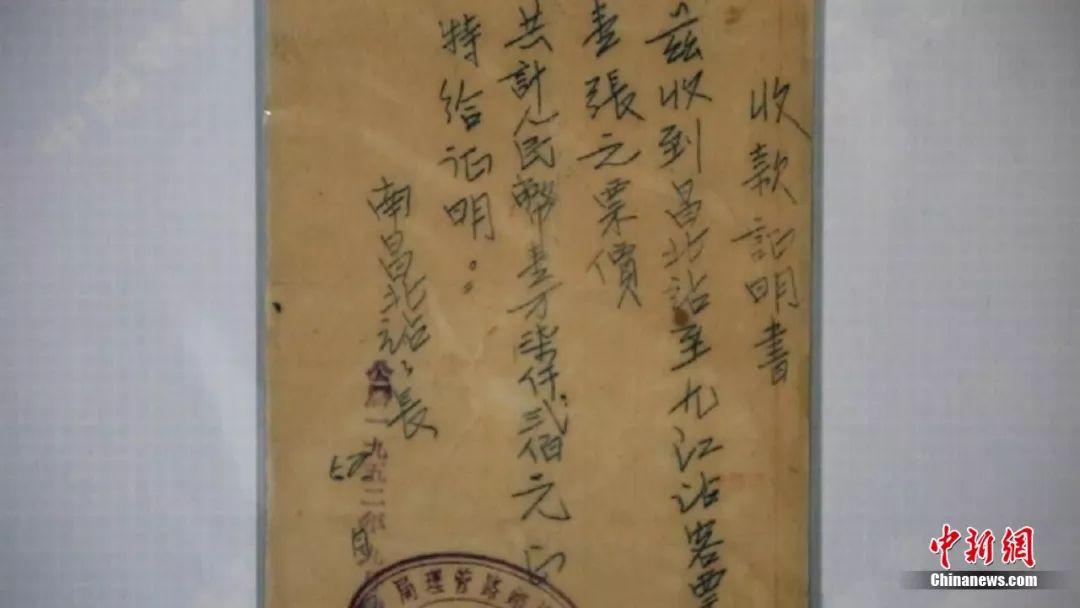 收款証明書
茲收到昌北站至九江站客票
壹張之票價
共計人民幣壹万柒仟弍佰元正
特给证明。
南昌北站长
公曆一九五二年
路管理局
中新網
Chinanews.com